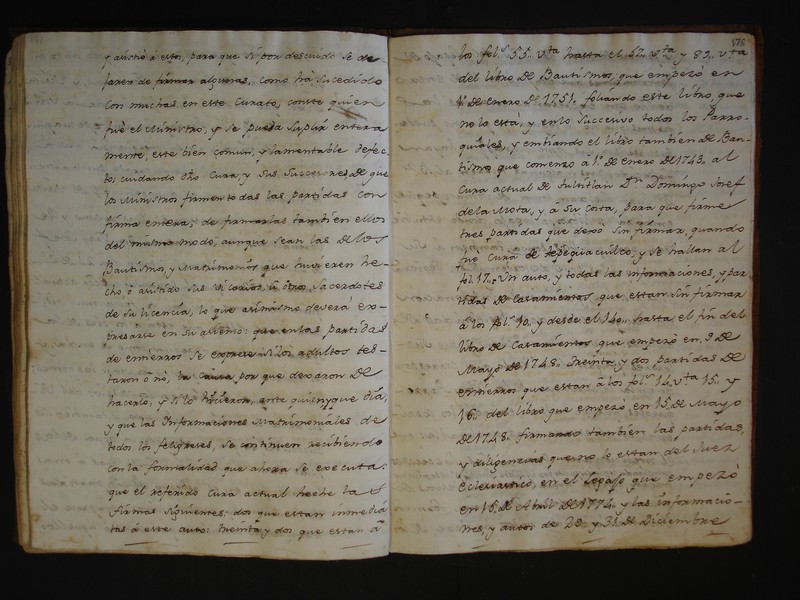 y asistió á estos, para que si por descuido se de-
jaren de firmar algunas, como há sucedido
con muchas en este Curato, conste quien
fue el Ministro, y se pueda suplir entera
mente, este bien comun, y lamentable defec-
to; cuidando dho Cura, y sus Successores, de que
los Ministros firmen todas las partidas con
firma entera; de firmarlas tambien ellos
del mismo modo, aunque sean las de los
Bautismos, y Matrimonios que huvieren he-
cho ó asistido sus Vicarios, ú otros Sacerdotes
de su licencia, lo que asimismo deverá ex-
presarse en su auerno: que en las partidas
de entierros se exprese si los adultos tes-
taron ó nó, la causa por que dexaron de
hacerlo, y si lo hicieron, ante quien, y que dia,
y que las Informaciones Matrimoniales de
todos los feligreses, se continuen recibiendo
con la formalidad que ahora se executa:
que el referido Cura actual heche las
firmas siguientes: dos que estan inmedia
tas á este auto: treinta y dos que estan á
178
los fol.s 55. vta hasta el 57. vta y 89. vta
del libro de Bautismos, que empezó en
1.º de Enero de 1751. foliando este libro, que
no lo está, y en lo successivo todos los Parro-
quiales, y embiando el libro tambien de Bau-
tismo que comenzo á 1.º de Enero de 1743. al
Cura actual de Tultitlan Dn Domingo Josef
de la Mota, y á su costa, para que firme
tres partidas que dexó sin firmar, quando
fue Cura de Tepequacuilco, y se hallan al
fol. 17. Un auto, y todas las informaciones, y par
tidas de Casamientos que estan sin firmar
á los fol.s 10. y desde el 140. hasta el fin del
libro de Casamientos que empezó en 9 de
Mayo de 1748. Treinta y dos partidas de
entierros que estan á los fol.s 14. vta 15. y
16. del libro que empezó en 15 de Mayo
de 1748. firmando tambien las partidas,
y diligencias que no lo estan del Juez
Eclesiastico, en el Legajo que empezó
en 15 de Abril de 1774. y las informacio-
nes, y autos de 28 y 31 de Diciembre